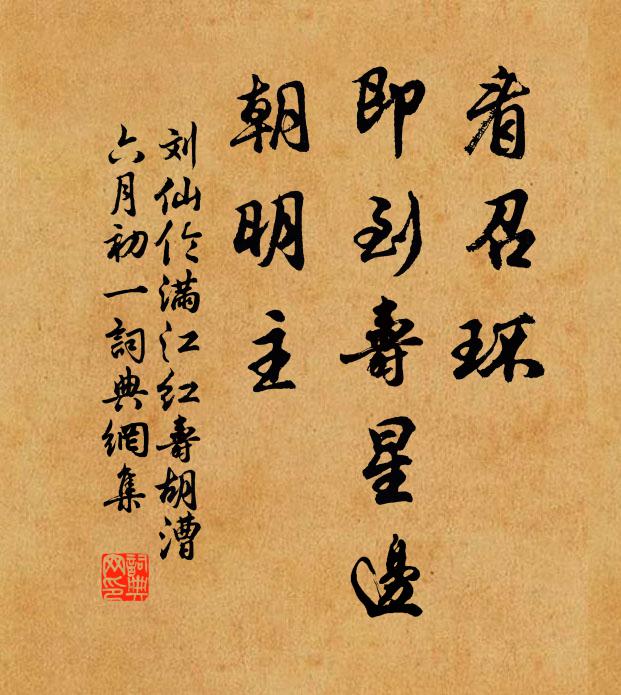 看召环
即到壽星邊
朝明主
刘仙伦满江红壽胡漕
六月初一詞典網集
詞典
网印